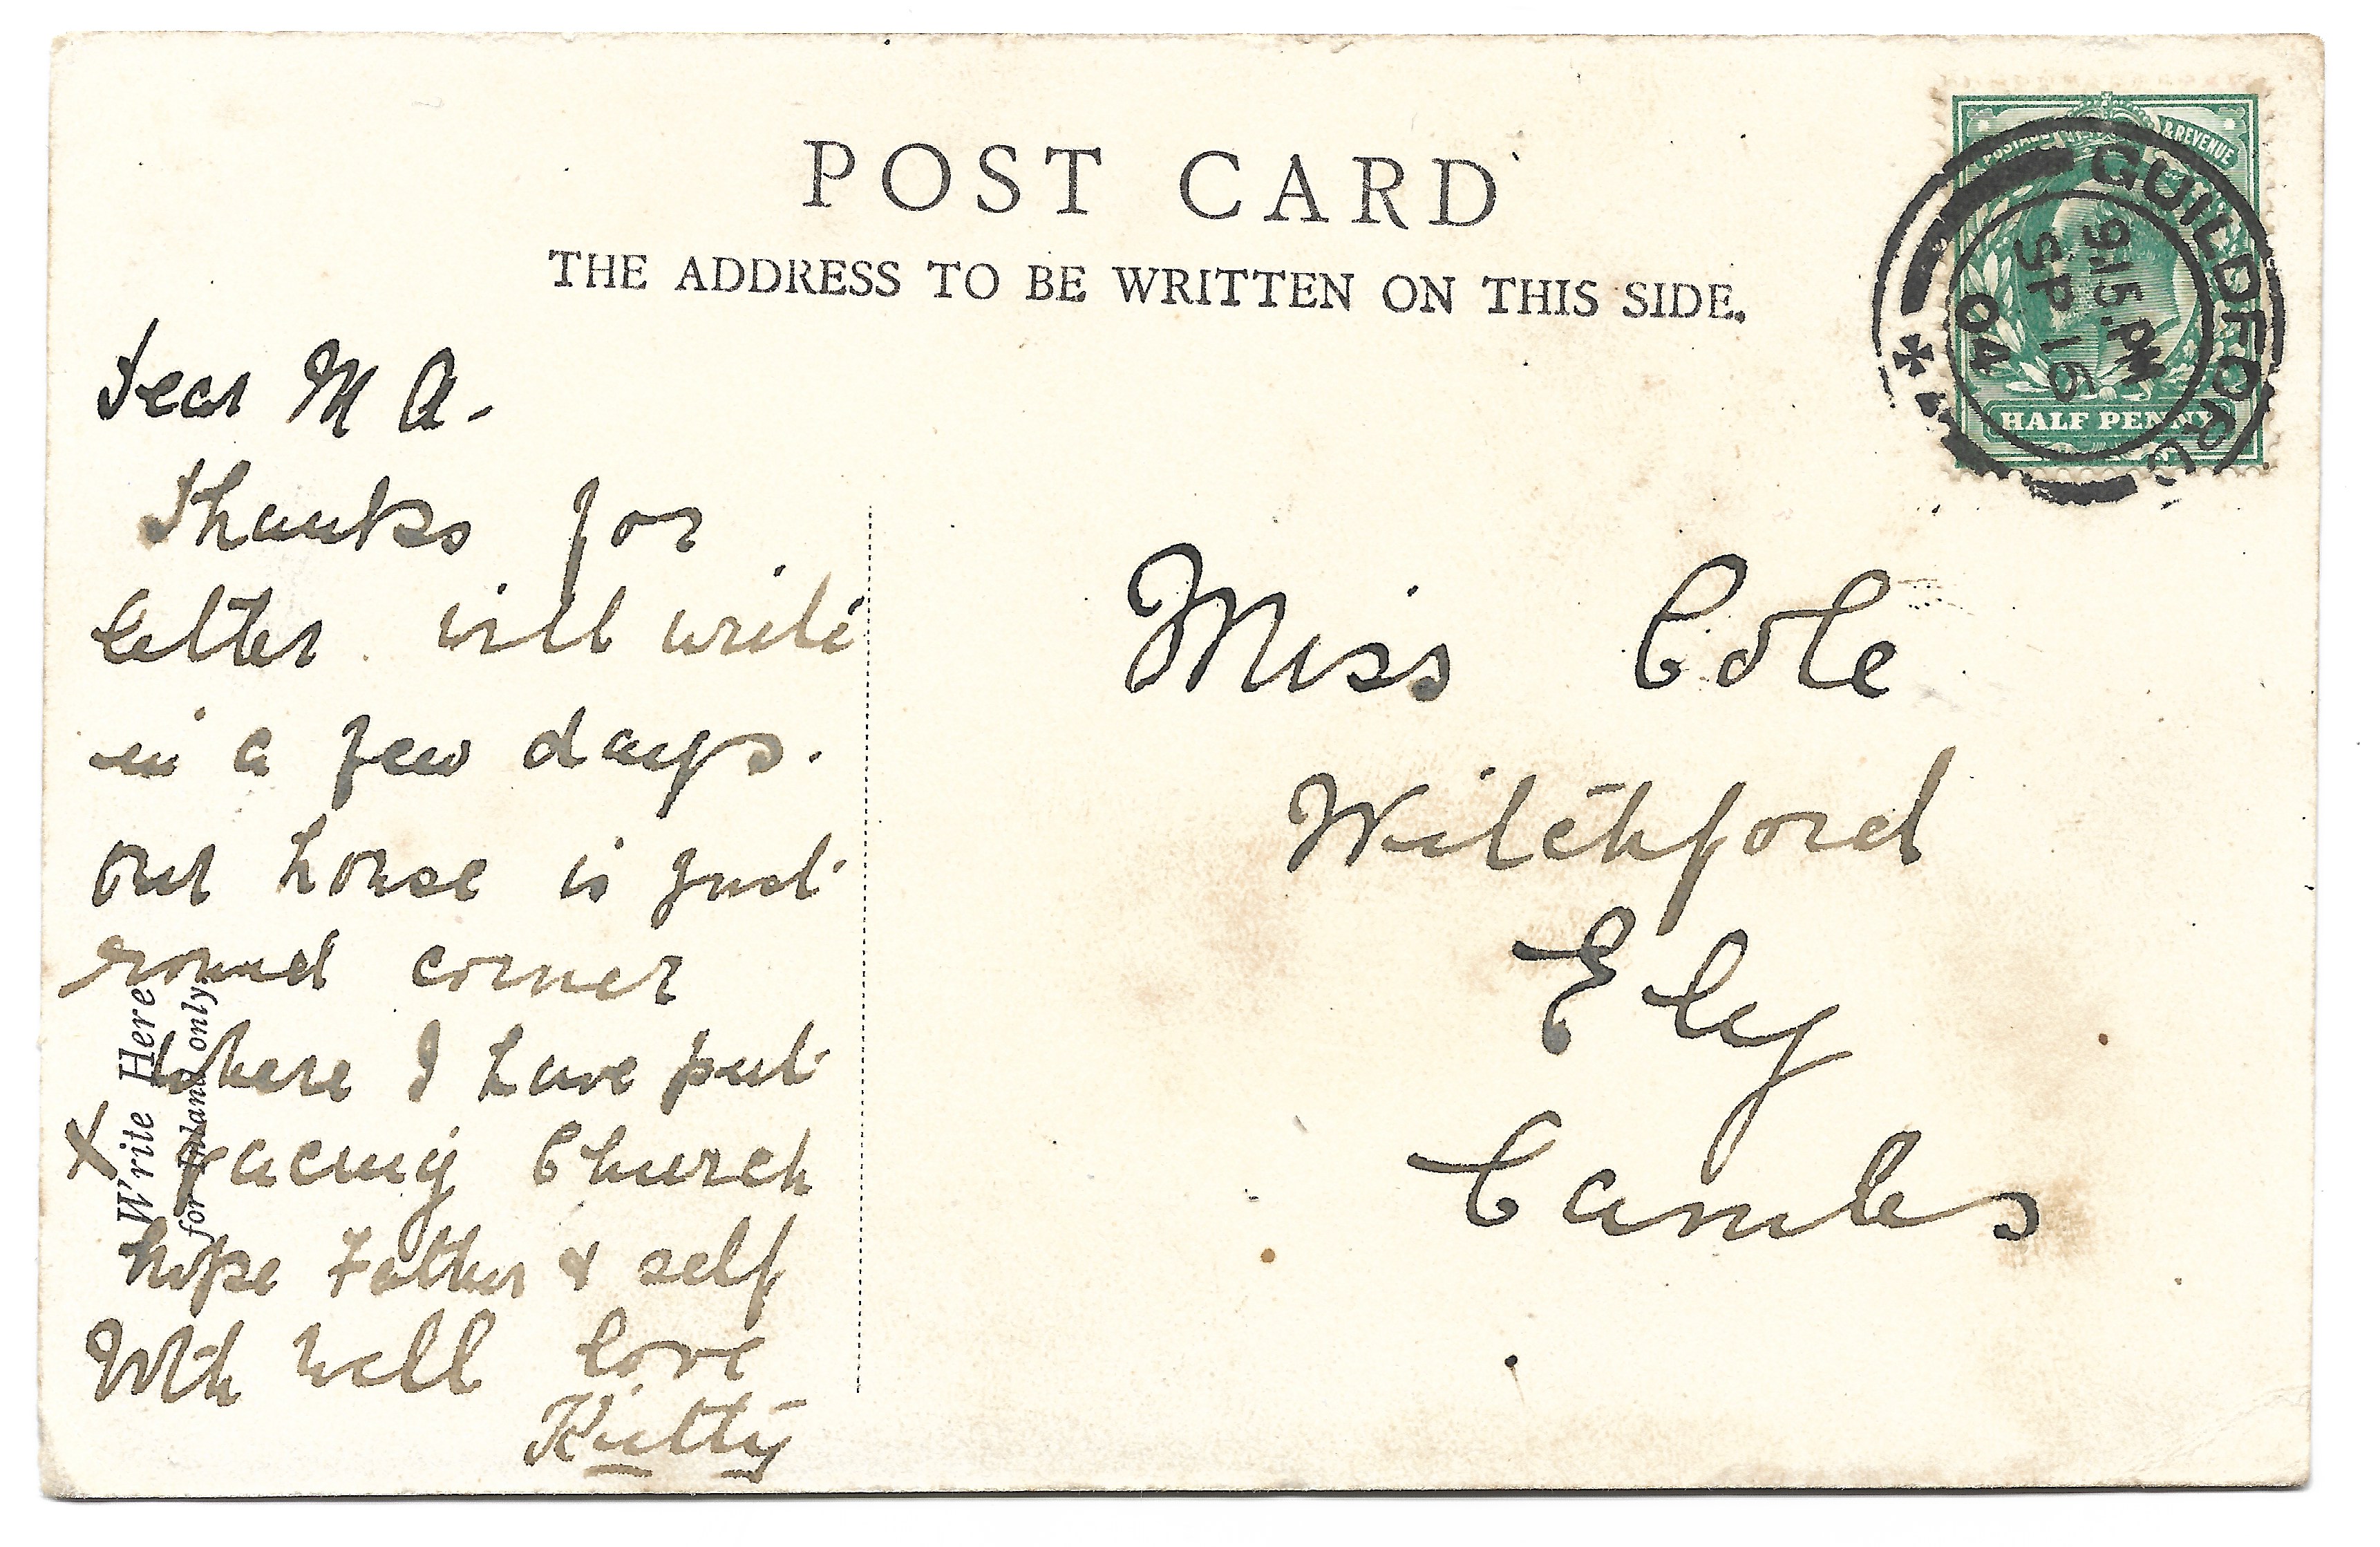 POST CARD
THE ADDRESS TO BE WRITTEN ON THIS SIDE.
POSTAGE & REVENUE
GUILDFORD
9.15 PM
SP 16
04
HALF PENNY
Dear M A.
Thanks for
letter. will write
in a few days.
our house is just
round corner
where I have put
X facing Church
hope Father & self
With well love
Kitty
Write Here
for Inland only.
Miss Cole
Witchford
Ely
Cambs